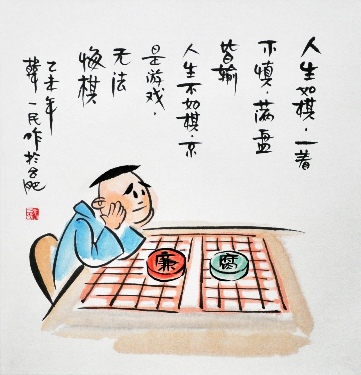 人生如棋·一着
不慎·满盘
皆输
人生不如棋·
是游戏·
无法
悔棋
乙未年
一民作於合肥
廉
腐